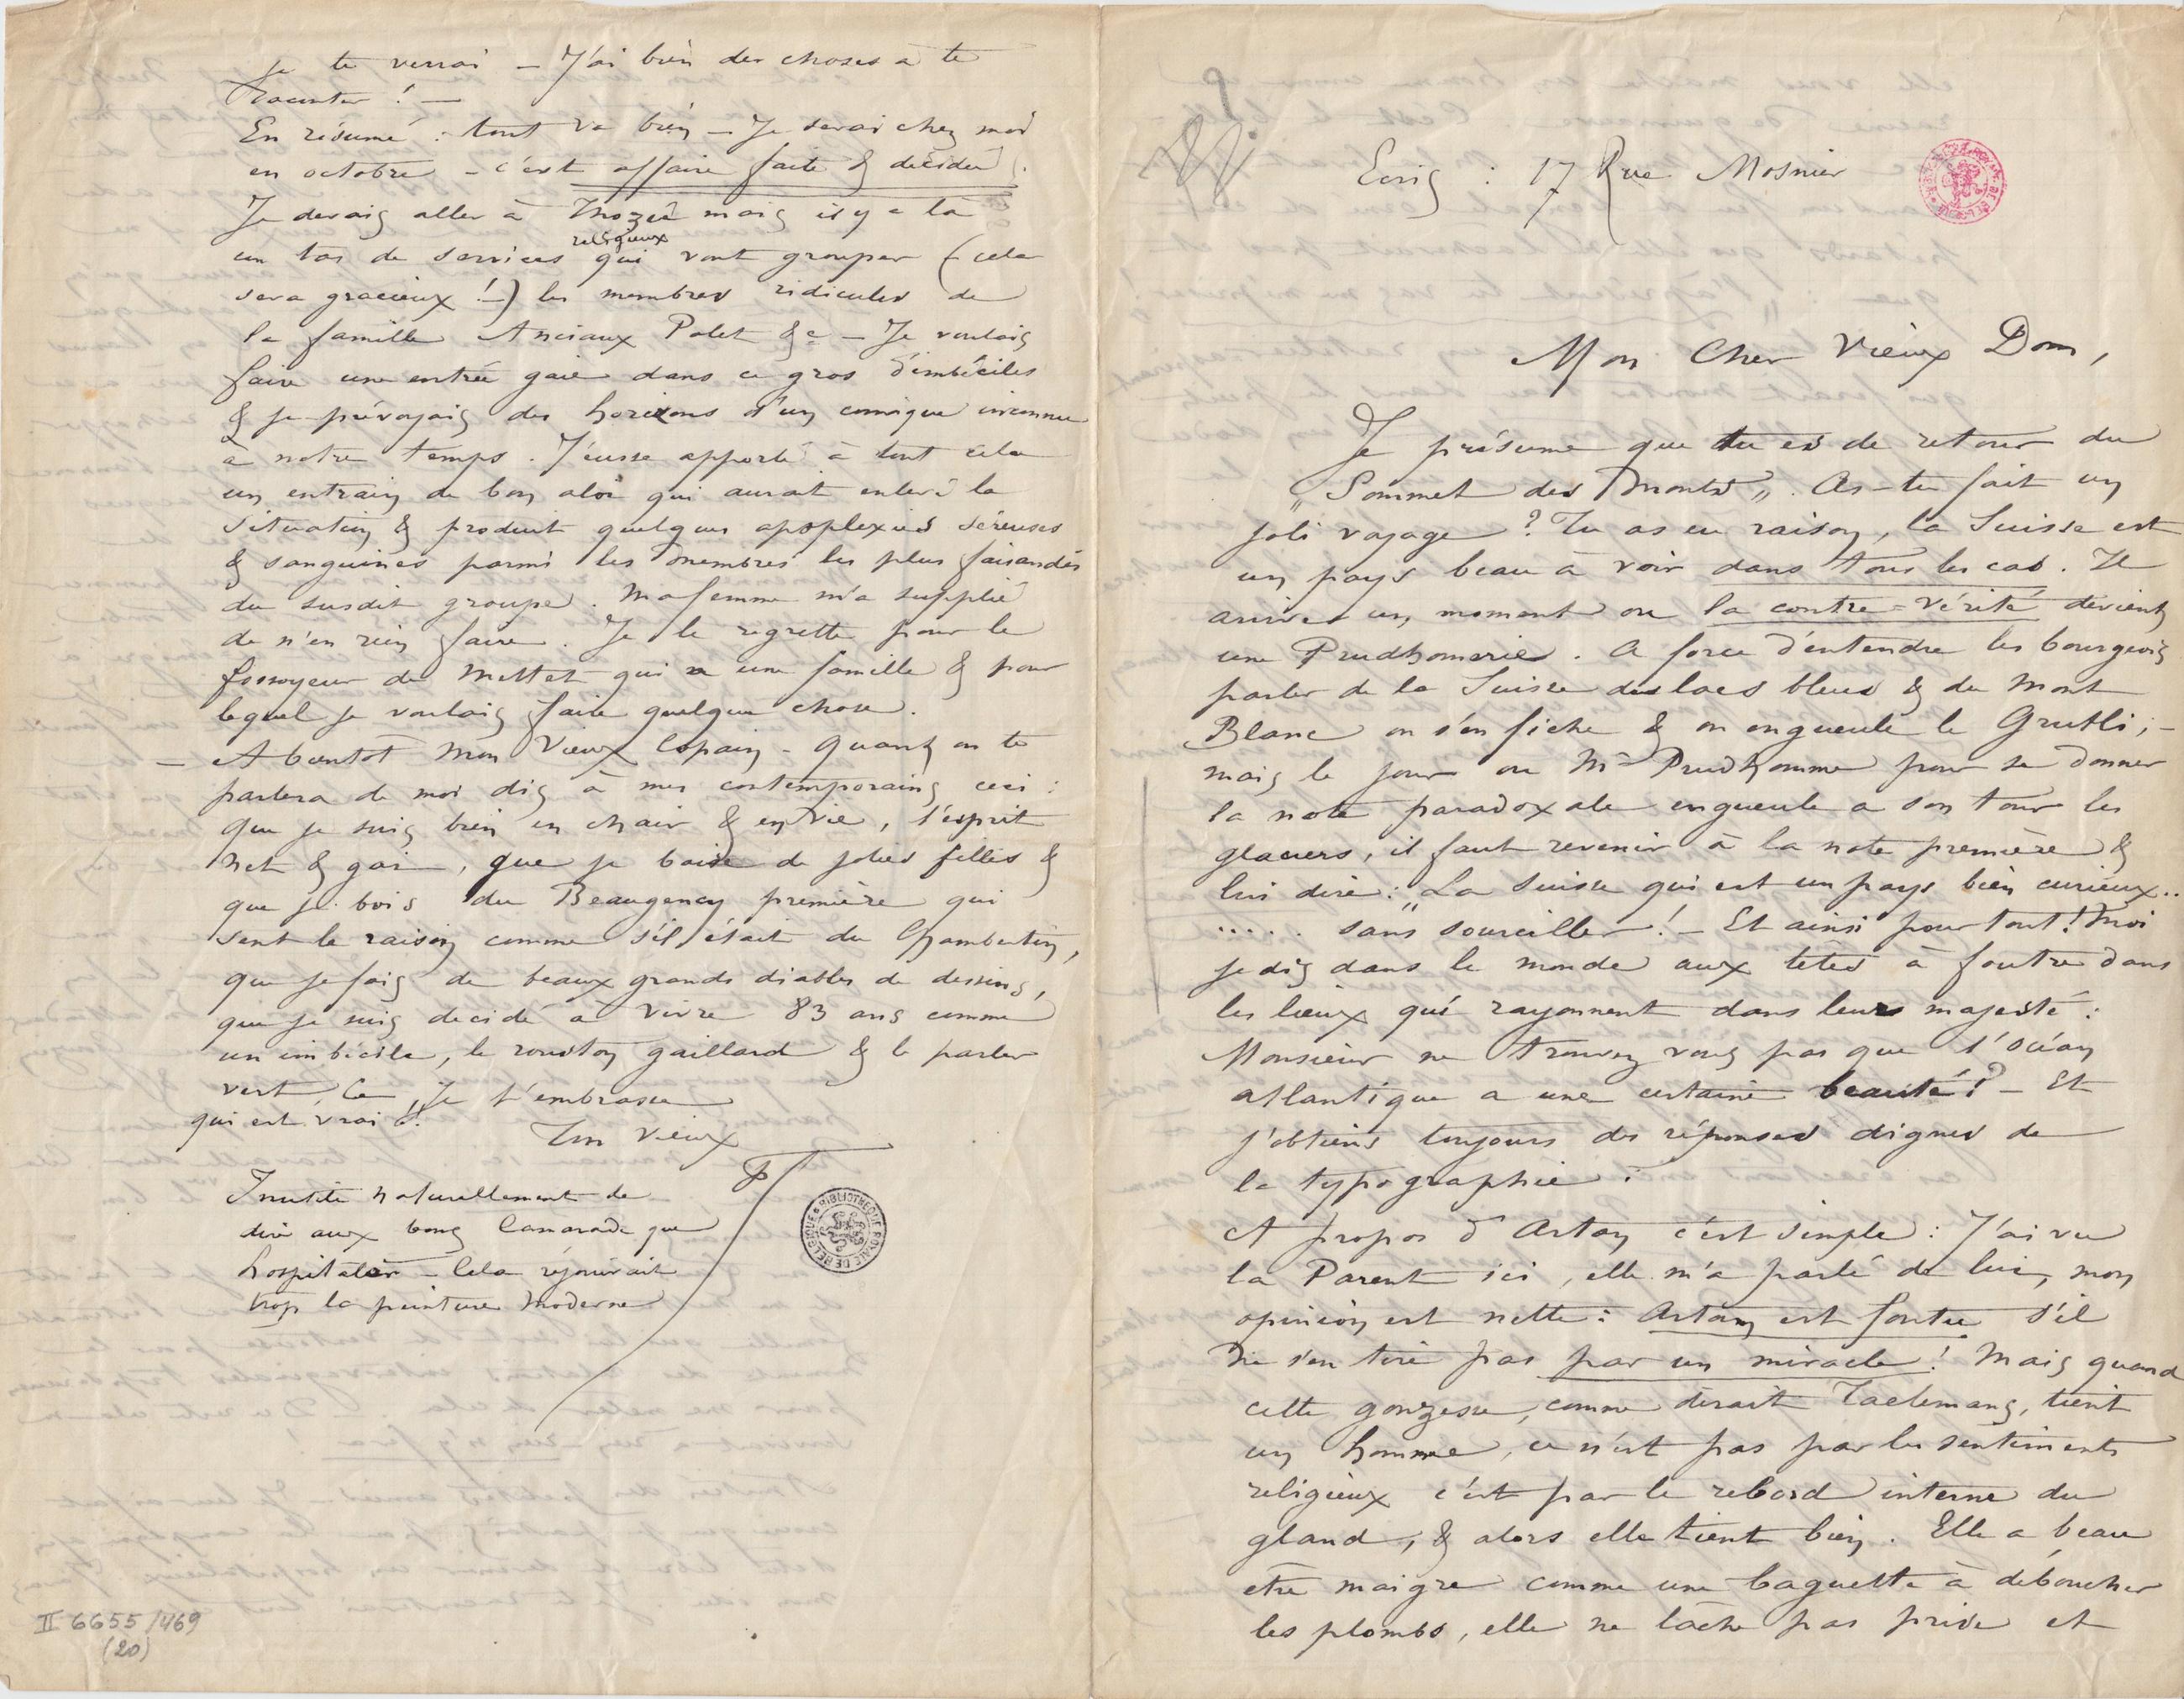 Ecris : 17 Rue Mosnier
Mon Cher Vieux Dom,
Je présume que tu es de retour du
„Sommet des Monts„. As-tu fait un
joli voyage ? Tu as eu raison, la Suisse est
un pays beau à voir dans tous les cas. Il
arrive un moment ou la contre-vérité devient
une Prudhomerie. A force d'entendre les bourgeois
parler de la Suisse des lacs bleus & du Mont
Blanc on s'en fiche & on engueule le Grutli ; –
mais le jour ou Mr Prudhomme pour se donner
la note paradoxale engueule a son tour les
glaciers, il faut revenir à la note première &
lui dire : „La Suisse qui est un pays bien curieux..
..... „ sans sourciller ! – Et ainsi pour tout ! Moi
je dis dans le monde aux têtes à foutre dans
les lieux qui rayonnent dans leurs majesté :
Monsieur ne trouvez vous pas que l'océan
atlantique a une certaine beauté ? – Et
j'obtiens toujours des réponses dignes de
la typographie :
A propos d'Artan c'est simple : J'ai vu
la Parent ici, elle m'a parlé de lui, mon
opinion est nette : Artan est foutu s'il
ne s'en tire pas par un miracle ! Mais quand
cette gonzesse, comme dirait Taelemans, tient
un homme, ce n'est pas par les sentiments
religieux c'est par le rebord interne du
gland, & alors elle tient bien. Elle a beau
etre maigre comme une baguette à déboucher
les plombs, elle ne lâche pas prise et
je te verrai – J'ai bien des choses à te
raconter ! –
En résumé : tout va bien – Je serai chez moi
en octobre – c'est affaire faite & décidée.
Je devais aller à Thozée mais il y a là
un tas de services religieux qui vont grouper (– cela
sera gracieux ! –) les membres ridicules de
la famille Anciaux Polet &c – Je voulais
faire une entrée gaie dans ce gros d'imbéciles
& je prévoyais des horizons d'un comique inconnu
à notre temps. J'eusse apporté à tout cela
un entrain de bon aloi qui aurait enlevé la
situation & produit quelques apoplexies séreuses
& sanguines parmi les membres les plus faisandés
du susdit groupe. Ma femme m'a supplié
de n'en rien faire. Je le regrette pour le
fossoyeur de Mettet qui a une famille & pour
lequel je voulais faire quelque chose.
– A bientôt Mon Vieux Copain – Quant on te
parlera de moi dis à mes contemporains ceci :
que je suis bien en chair & en vie, l'esprit
net & gai, que je baise de jolies filles &
que je bois du Beaugency première qui
sent le raisin comme s'il était du Chambertin,
que je fais de beaux grands diables de dessins,
que je suis décidé à vivre 83 ans comme
un imbécile, le rouston gaillard & le parler
vert, Ce qui est vrai !! Je t'embrasse
Ton vieux
Inutile naturellement de
dire aux bons Camarade que
hospitalier – Cela réjouirait
trop la peinture moderne
BIBLIOTHEQUE ROYALE DE BELGIQUE
II 6655/469
(20)